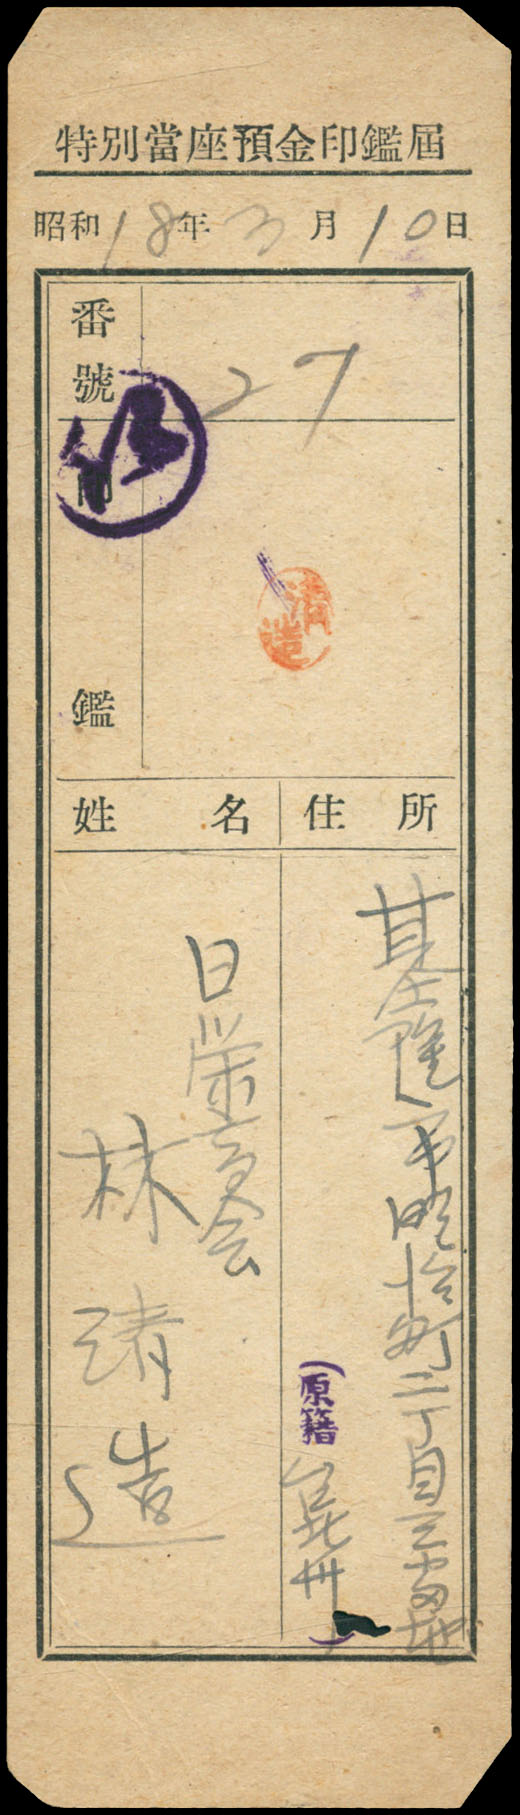 特別當座預金印鑑屆
昭和18年3月10日
番號
27
印鑑
清造
姓名
住所
基隆市
町二丁目三番地
(原籍
台北州
)
日栄商会
林清造